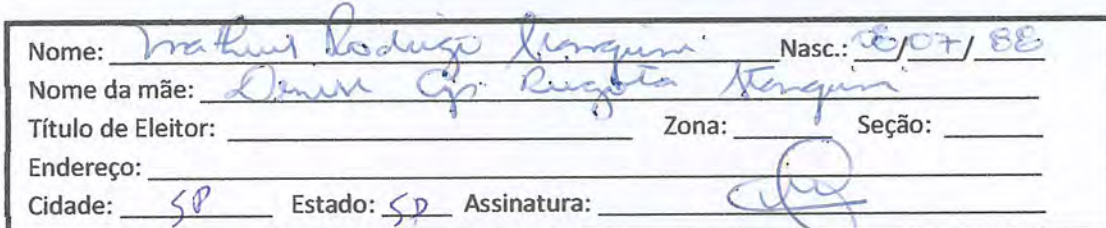 Nome: Matheus Rodrigo Stanquini Nasc.: 08/07/88
Nome da mãe: Denise Ap. Stanquini
Título de Eleitor: Zona: Seção:
Endereço:
Cidade: SP Estado: SP Assinatura: